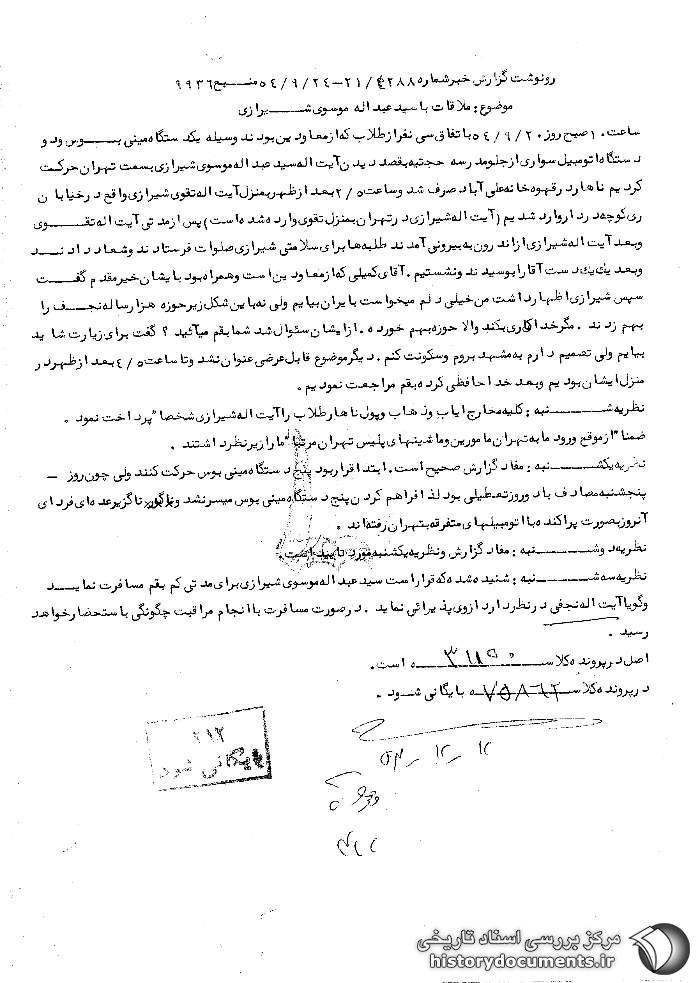 رونوشت گزارش خبر شماره ۴۲۸۸۸/۲۱-۵۴/۹/۲۴ منبع ۹۹۳۶
موضوع : ملاقات با سید عبداله موسوی شیرازی
ساعت ۱۰ صبح روز ۵۴/۹/۲۰ با تفاق سی نفر از طلاب که از معاودین بودند وسیله یکدستگاه مینی بوس و دو
دستگاه اتومبیل سواری از جلو مدرسه حجتیه بقصد دیدن آیت اله سید عبداله موسوی شیرازی بسمت تهران حرکت
کردیم ناهار در قهوه خانه علی آباد صرف شد وساعت ۲/۵ بعد از ظهر بمنزل آیت اله تقوی شیرازی واقع در خیابان
ری کوچه دردار وارد شدیم (آیت اله شیرازی در تهران بمنزل تقوی وارد شده است) پس از مدتی آیت اله تقوی
وبعد آیت اله شیرازی از اندرون به بیرونی آمدند طلبه ها برای سلامتی شیرازی صلوات فرستادند وشعار دادند
وبعد یک یک دست آقا را بوسیدند ونشستیم . آقای کمیلی که از معاودین است وهمراه بود بایشان خیر مقدم گفت
سپس شیرازی اظهار داشت من خیلی دلم میخواست بایران بیایم ولی نه باین شکل زیر حوزه هزار ساله نجف را
بهم زدند . مگر خدا کاری بکند والا حوزه بهم خورده . از ایشان سئوال شد شما بقم میآئید ؟ گفت برای زیارت شاید
بیایم ولی تصمیم دارم به مشهد بروم وسکونت کنم . دیگر موضوع قابل عرضی عنوان نشد وتا ساعت ۴/۵ بعد از ظهر در
منزل ایشان بودیم وبعد خدا حافظی کرده بقم مراجعت نمودیم .
نظریه شنبه : کلیه مخارج ایاب وذهاب وپول ناهار طلاب را آیت اله شیرازی شخصا" پرداخت نمود .
ضمنا" از موقع ورود ما به تهران مامورین وماشینهای پلیس تهران مرتبا" ما را زیر نظر داشتند .
نظریه یکشنبه : مفاد گزارش صحیح است . ابتدا قرار بود پنج دستگاه مینی بوس حرکت کنند ولی چون روز –
پنجشنبه مصادف با دو روز تعطیلی بود لذا فراهم کردن پنج دستگاه مینی بوس میسر نشد وناگزیر عده ای فردای
آنروز بصورت پراکنده با اتومبیلهای متفرقه بتهران رفته اند .
نظریه دوشنبه : مفاد گزارش ونظریه یکشنبه مورد تایید است .
نظریه سه شنبه : شنیده شده که قرار است سید عبداله موسوی شیرازی برای مدتی کم بقم مسافرت نماید
وگویا آیت اله نجفی در نظر دارد از وی پذیرائی نماید . در صورت مسافرت با انجام مراقبت چگونگی باستحضار خواهد
رسید .
اصل در پرونده کلاسه است .
در پرونده کلاسه بایگانی شود .
۲۱۲
بایگانی شود
مرکز بررسی اسناد تاریخی
historydocuments.ir